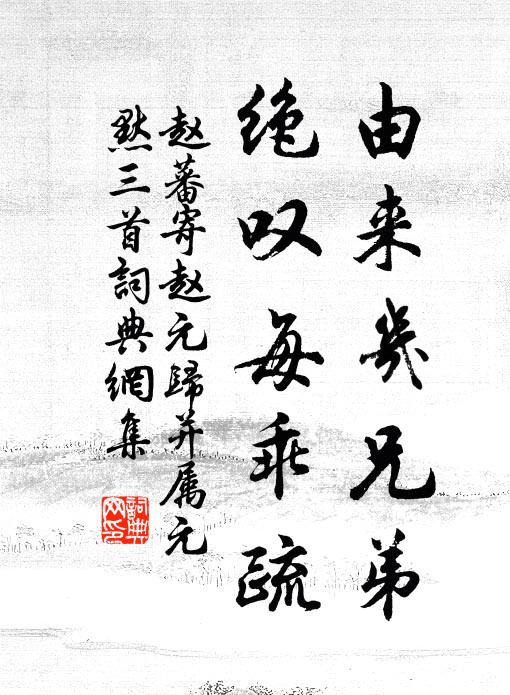 由来幾兄弟
绝叹每乖疏
赵蕃寄赵元歸并属元
黙三首詞典網集
詞典网印